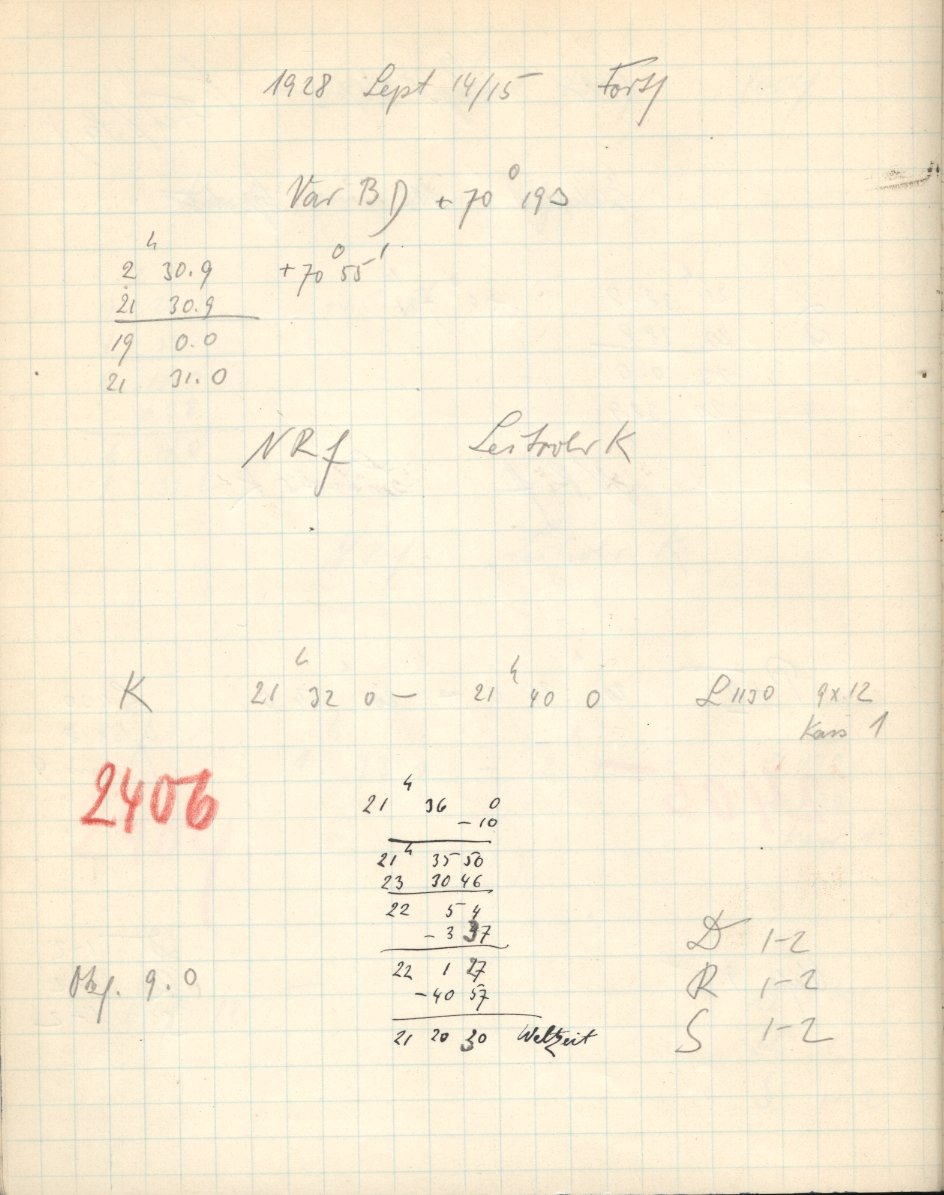 1928 Sept 14/15 Forts
Var BD +70° 193
2ʰ 30.9 +70° 55'
21 30.9
19 0.0
21 31.0
NRf Leitrohr K
K 21ʰ 32 0 – 21ʰ 40 0 L 1130 9x12
Kass 1
2406
21ʰ 36 0
-10
21ʰ 35 50
23 30 46
22 5 4
-3 37
22 1 27
-40 57
21 20 30 Weltzeit
9.0
D 1-2
R 1-2
S 1-2